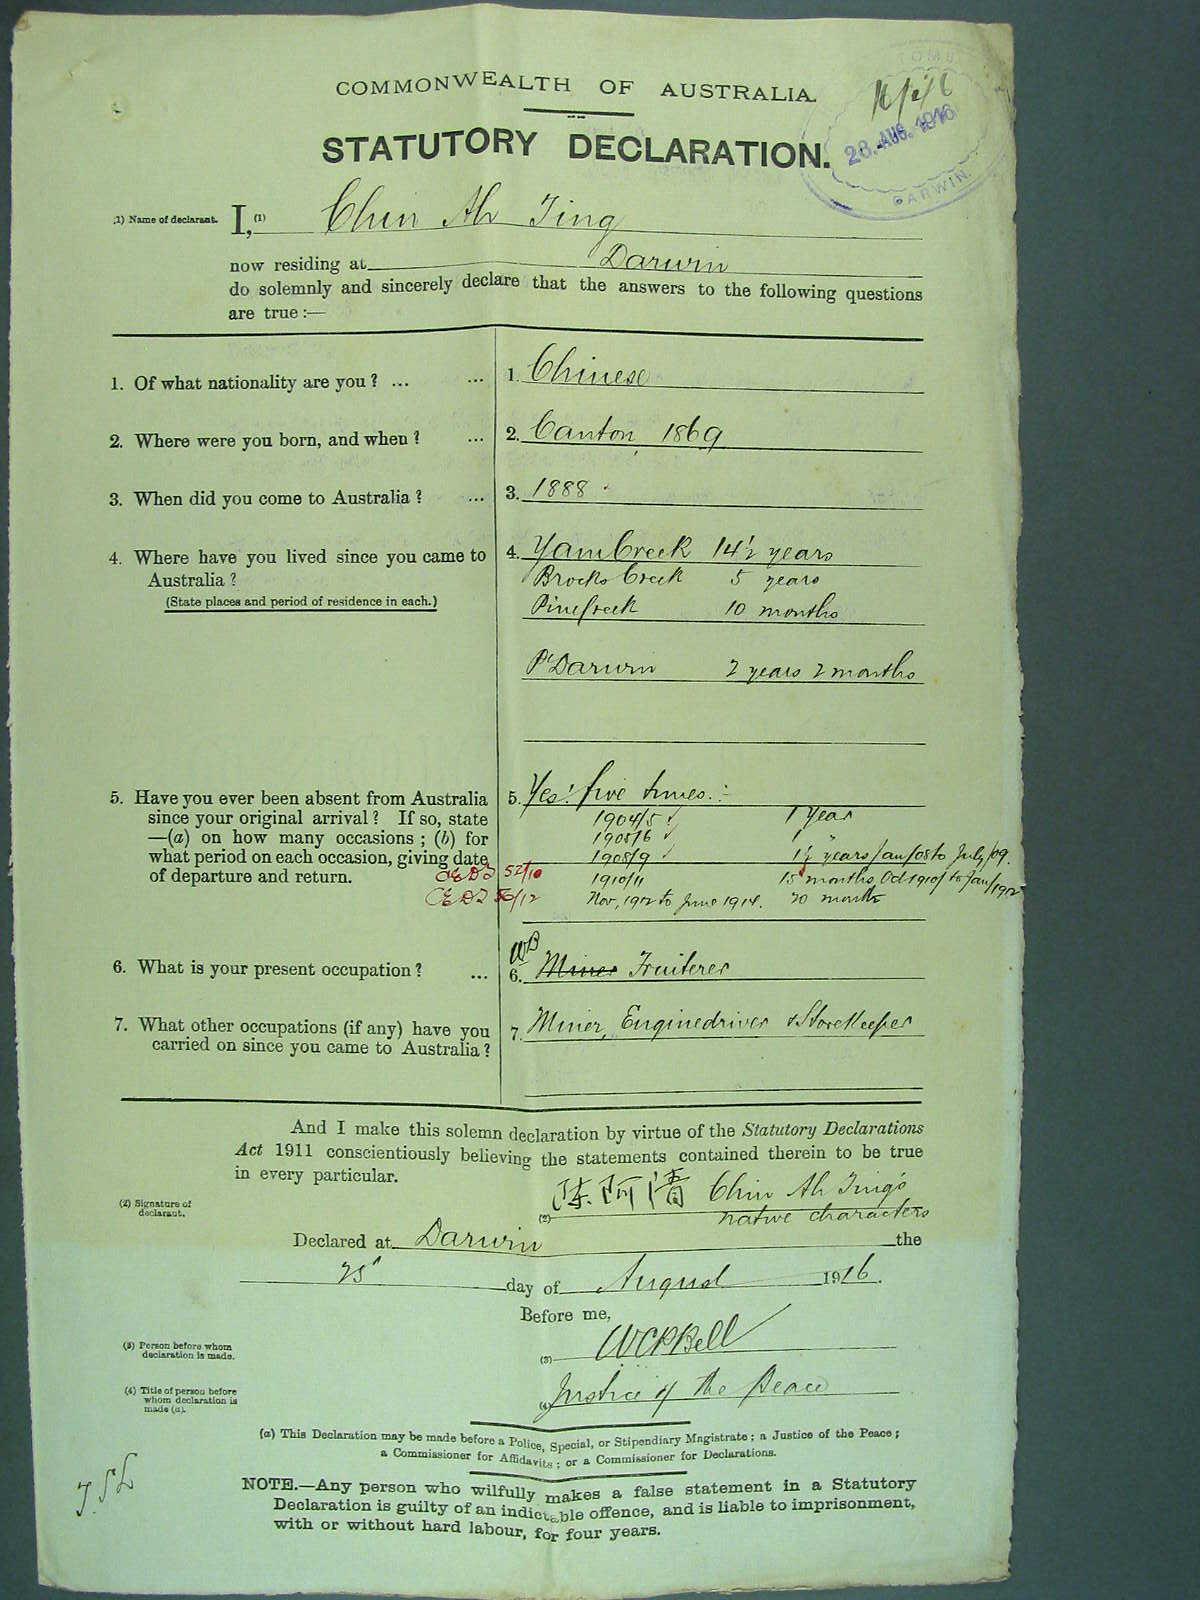 COMMONWEALTH OF AUSTRALIA.
STATUTORY DECLARATION.
28. AUG. 1916
DARWIN.
(1) Name of declarant. I, (1) Chin Ah Ting
now residing at Darwin
do solemnly and sincerely declare that the answers to the following questions
are true :—
1. Of what nationality are you ? ... ... 1. Chinese
2. Where were you born, and when ? ... 2. Canton, 1869
3. When did you come to Australia ? ... 3. 1888
4. Where have you lived since you came to 4. Yam Creek 14½ years
Australia ? Brocks Creek 5 years
(State places and period of residence in each.) Pine Creek 10 months
Pt Darwin 2 years 2 months
5. Have you ever been absent from Australia 5. Yes! five times. :-
since your original arrival ? If so, state 1904/5 1 Year
—(a) on how many occasions ; (b) for 1905/6 1 "
what period on each occasion, giving date 1908/9 1½ years Jan/08 to July/09.
of departure and return. CEDT 52/10 1910/11 15 months, Oct 1910/ to Jan/1912
CEDT 56/12 Nov, 1912 to June 1914. 20 months
WB
6. What is your present occupation ? ... 6. Miner Fruiterer
7. What other occupations (if any) have you 7. Miner, Enginedriver & Storekeeper
carried on since you came to Australia ?
And I make this solemn declaration by virtue of the Statutory Declarations
Act 1911 conscientiously believing the statements contained therein to be true
in every particular.
(2) Signature of declarant. (2) 陈阿清 Chin Ah Ting's
native characters
Declared at Darwin the
25" day of August 1916.
Before me,
(3) Person before whom declaration is made. (3) WCPBell
(4) Title of person before whom declaration is made (a). (4) Justice of the Peace
(a) This Declaration may be made before a Police, Special, or Stipendiary Magistrate ; a Justice of the Peace ;
a Commissioner for Affidavits ; or a Commissioner for Declarations.
NOTE.—Any person who wilfully makes a false statement in a Statutory
Declaration is guilty of an indictable offence, and is liable to imprisonment,
with or without hard labour, for four years.